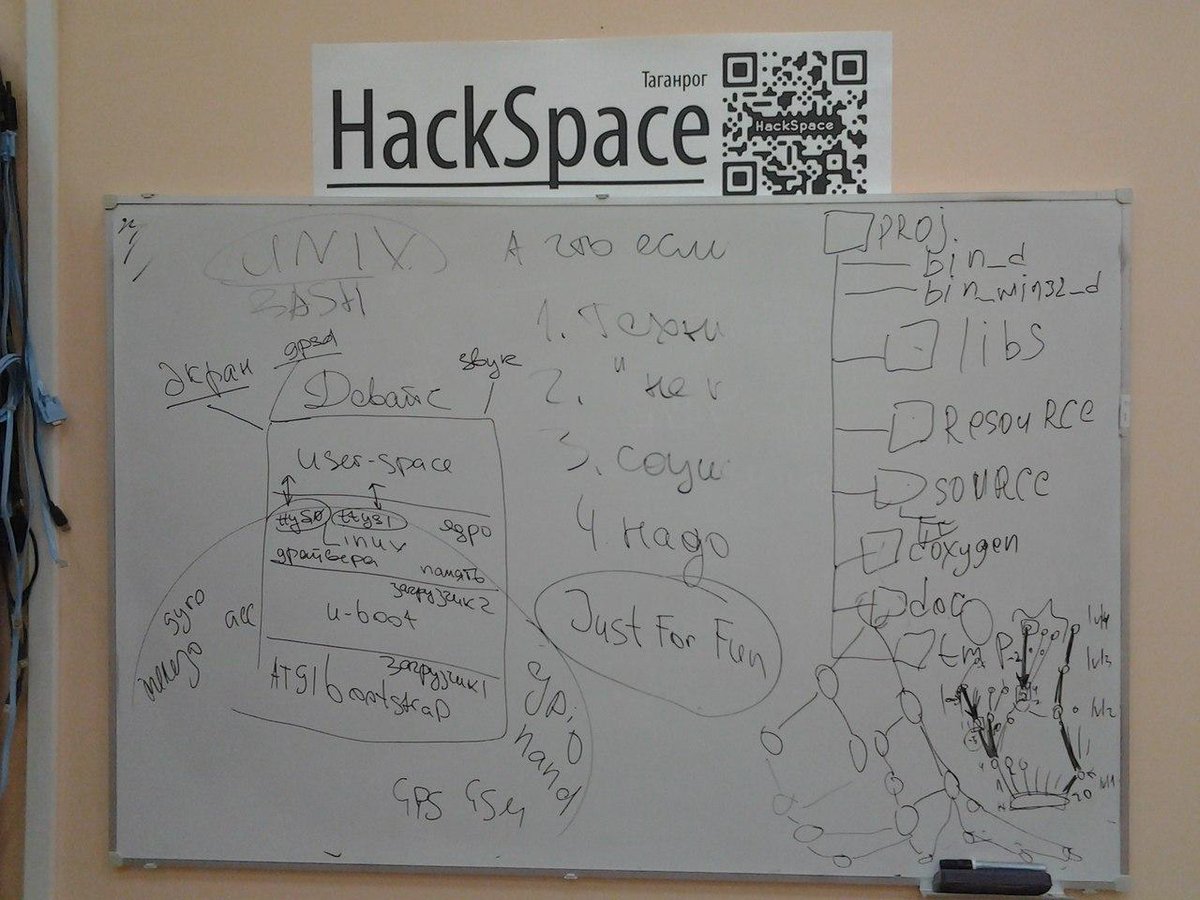 Таганрог
HackSpace
HackSpace
UNIX
BASH
gpsd
Экран
звук
Девайс
user-space
ttyS0 ttyS1
ядро
Linux
драйвера
память
загрузчик2
u-boot
загрузчик1
AT91bootstrap
gyro
acc
железо
GPS GSM
nand
А что если
1. Техни
2. и не
3. Соци
4. надо
Just For Fun
PROJ.
bin_d
bin_win32_d
libs
Resource
source
doxygen
doc
tmp
lvl4
lvl3
lvl2
lvl1
20